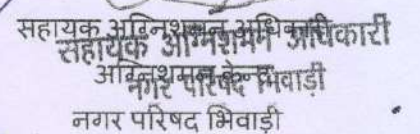 सहायक अग्निशमन अधिकारी
सहायक अग्निशमन अधिकारी
अग्निशमन केन्द्र
नगर परिषद भिवाड़ी
नगर परिषद भिवाड़ी